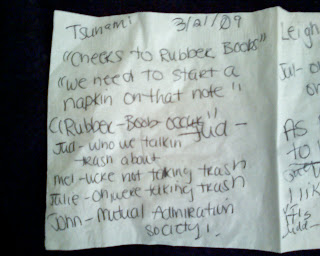 Tsunami 3/21/09
"Cheers to Rubber Boobs"
"we need to start a
napkin on that note"
((Rubber-Boob Jud -
Jud - who we talkin
trash about
Mel - we're not talking trash
Julie - oh we're talking trash
John - Mutual Admiration
Society!
Leigh
Jul - o
AS
to
I lik
its
Jud-